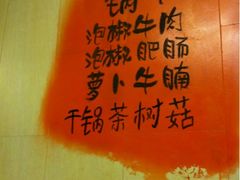 锅牛肉
泡椒牛肉
泡椒肥肠
萝卜牛腩
干锅茶树菇